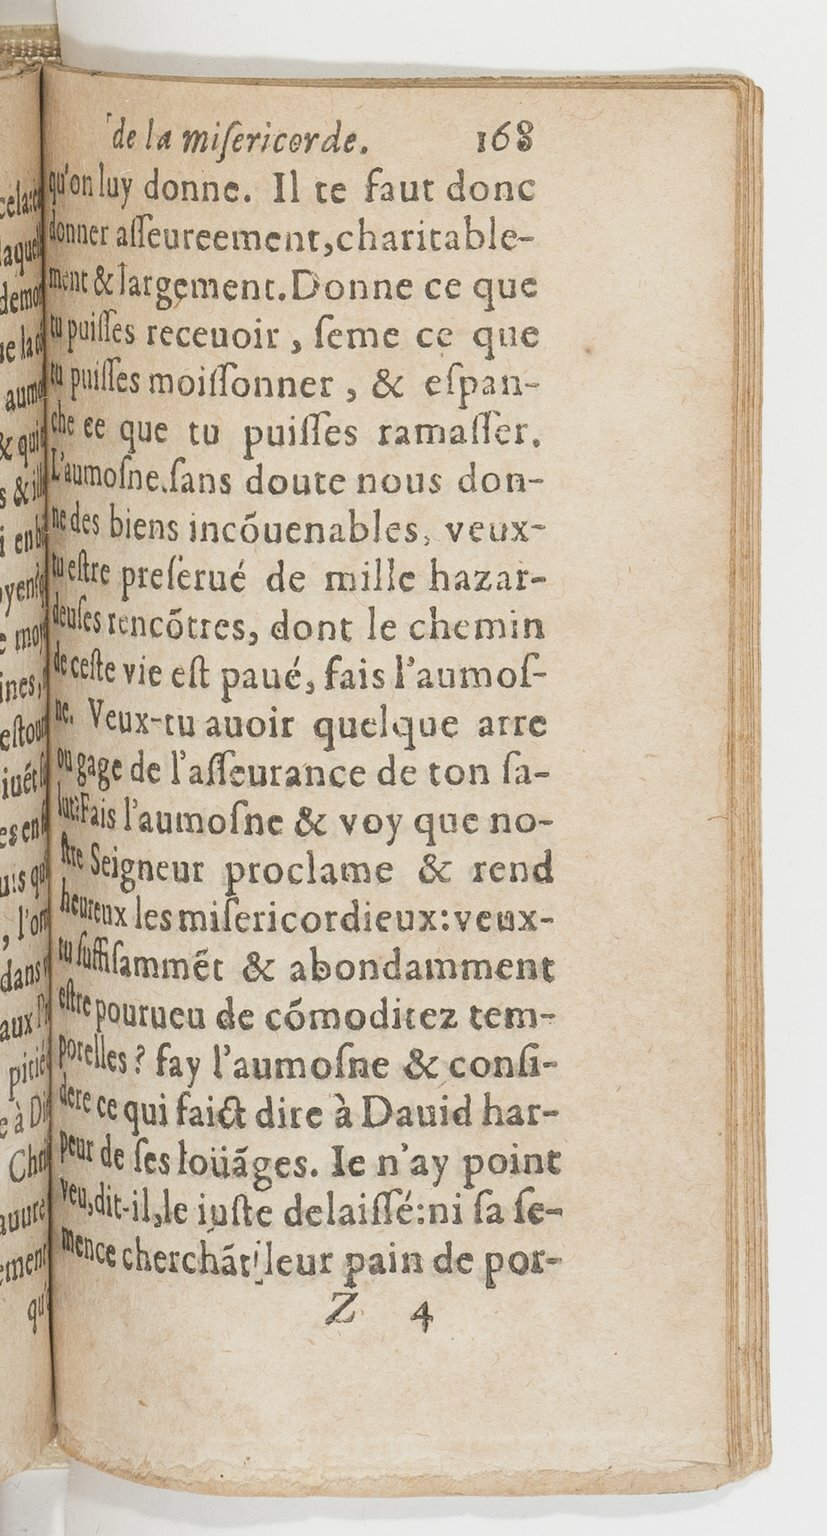 de la miſericorde. 168
qu'on luy donne. Il te faut donc
donner aſſeureement, charitable-
ment & largement. Donne ce que
tu puiſſes receuoir, ſeme ce que
tu puiſſes moiſſonner, & eſpan-
che ce que tu puiſſes ramaſſer.
L'aumoſne.ſans doute nous don-
ne des biens incõuenables, veux-
tu eſtre preſerué de mille hazar-
deuſes rencõtres, dont le chemin
de ceſte vie eſt paué, fais l'aumoſ-
ne. Veux-tu auoir quelque arre
ou gage de l'aſſeurance de ton ſa-
lut: Fais l'aumoſne & voy que no-
ſtre Seigneur proclame & rend
heureux les miſericordieux: veux-
tu ſuffiſammẽt & abondamment
eſtre pourueu de cõmoditez tem-
porelles? fay l'aumoſne & conſi-
dere ce qui faict dire à Dauid har-
peur de ſes loüãges. Ie n'ay point
veu, dit-il, le iuſte delaiſſé: ni ſa ſe-
mence cherchãt leur pain de por-
Z 4